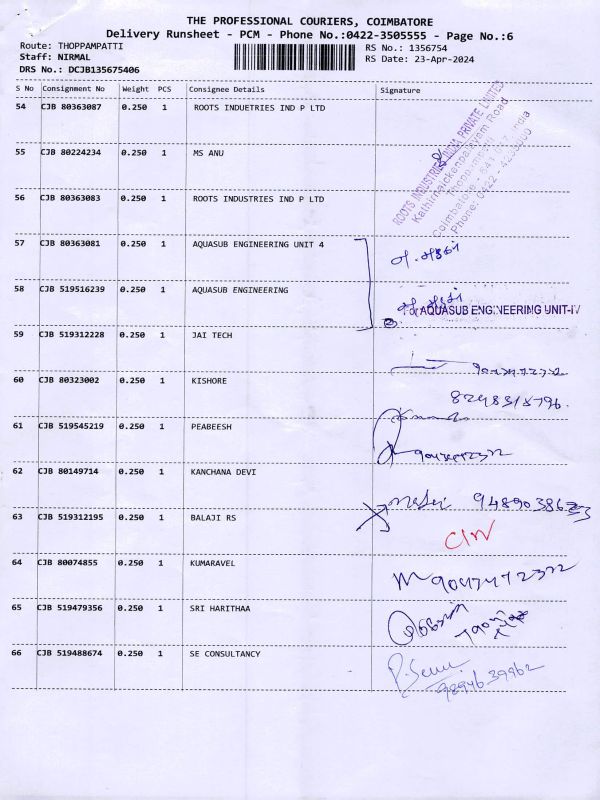 THE PROFESSIONAL COURIERS, COIMBATORE
Delivery Runsheet - PCM - Phone No.:0422-3505555 - Page No.:6
Route: THOPPAMPATTI
Staff: NIRMAL
DRS No.: DCJB135675406
RS No.: 1356754
RS Date: 23-Apr-2024
S No Consignment No Weight PCS Consignee Details Signature
54 CJB 80363087 0.250 1 ROOTS INDUETRIES IND P LTD
ROOTS INDUSTRIES INDIA PRIVATE LIMITED
Kathirnaickenpalayam Road
Thoppampatti
Phone: 0422 -
55 CJB 80224234 0.250 1 MS ANU
56 CJB 80363083 0.250 1 ROOTS INDUSTRIES IND P LTD
57 CJB 80363081 0.250 1 AQUASUB ENGINEERING UNIT 4
58 CJB 519516239 0.250 1 AQUASUB ENGINEERING
For AQUASUB ENGINEERING UNIT-IV
59 CJB 519312228 0.250 1 JAI TECH
60 CJB 80323002 0.250 1 KISHORE
8248318796
61 CJB 519545219 0.250 1 PEABEESH
62 CJB 80149714 0.250 1 KANCHANA DEVI
63 CJB 519312195 0.250 1 BALAJI RS
64 CJB 80074855 0.250 1 KUMARAVEL
65 CJB 519479356 0.250 1 SRI HARITHAA
66 CJB 519488674 0.250 1 SE CONSULTANCY
9894639962